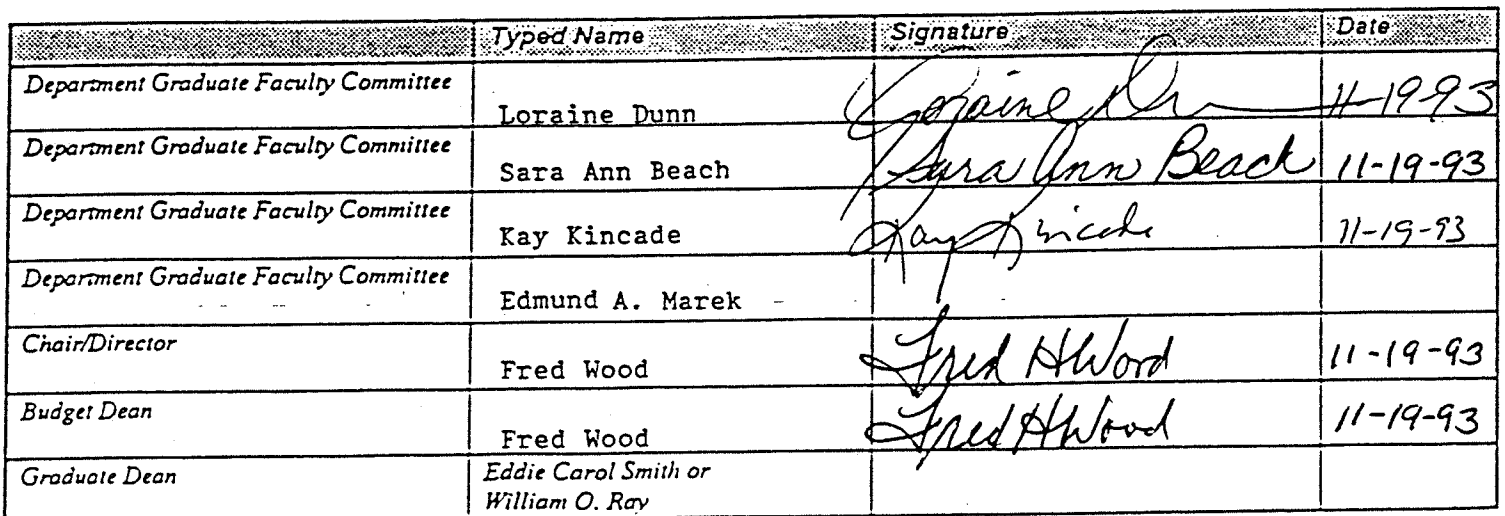 Typed Name Signature Date
Department Graduate Faculty Committee
Loraine Dunn Loraine Dunn 11-19-93
Department Graduate Faculty Committee
Sara Ann Beach Sara Ann Beach 11-19-93
Department Graduate Faculty Committee
Kay Kincade Kay Kincade 11-19-93
Department Graduate Faculty Committee
Edmund A. Marek
Chair/Director
Fred Wood Fred H Wood 11-19-93
Budget Dean
Fred Wood Fred H Wood 11-19-93
Graduate Dean Eddie Carol Smith or
William O. Ray